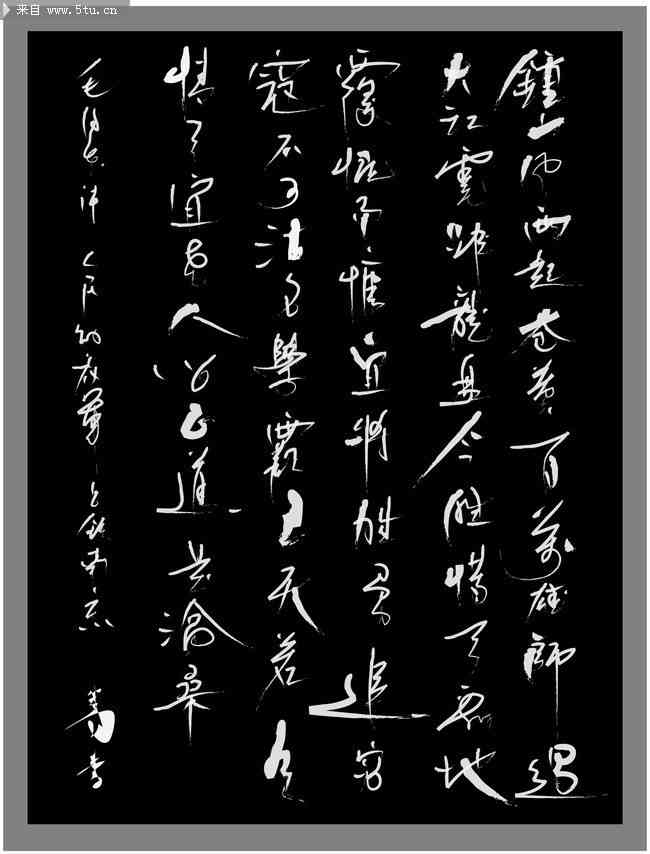 来自 www.5tu.cn
鍾山風雨起蒼黃百萬雄師過
大江虎踞龍盤今勝昔天翻地
覆慨而慷宜將剩勇追窮
寇不可沽名學霸王天若有
情天亦老人間正道是滄桑
毛澤東詩 人民解放軍占領南京 書